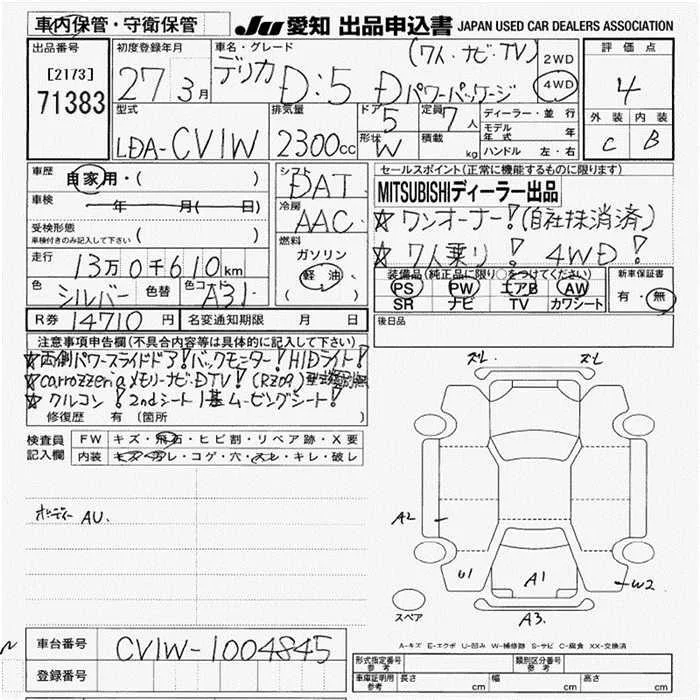 車内保管・守衛保管
JU 愛知 出品申込書 JAPAN USED CAR DEALERS ASSOCIATION
出品番号
[2173]
71383
初度登録年月
27 3月
車名・グレード
(7人.ナビ.TV)
デリカ D:5 D パワーパッケージ
2WD
4WD
評価点
4
外装 内装
C B
型式
LDA-CV1W
排気量
2300cc
ドア
5
形状
W
定員
7人
積載
kg
ディーラー・並行
モデル年式 年
ハンドル 左・右
車歴
自家用・( )
車検
年 月( 日)
受検形態
車検付きのみ記入して下さい ( )
走行
13万0千610km
色
シルバー
色替
色コード
A31
シフト
DAT
冷房
AAC
燃料
ガソリン
軽油
( )
セールスポイント(正常に機能するものに限ります)
MITSUBISHIディーラー出品
☆ワンオーナー!(自社抹消済)
☆7人乗り! 4WD!
装備品(純正品に限り○をつけてください)
PS PW エアB AW
SR ナビ TV カワシート
新車保証書
有・無
R券 14710円
名変通知期限 月 日
後日品
注意事項申告欄(不具合内容等は具体的に記入して下さい)
☆両側パワースライドドア!バックモニター!HIDライト!
☆carrozzeriaメモリーナビ・DTV!(RZ09)
☆クルコン!2ndシート1基ムービングシート!
修復歴 有(箇所 )
検査員記入欄
FW キズ・飛石・ヒビ割・リペア跡・X要
内装 キズ・ヨゴレ・コゲ・穴・スレ・キレ・破レ
ボディー AU.
スレ スレ
A2
U1
A1
W2
A3
スペア
A-キズ E-エクボ U-凹み W-補修跡 S-サビ C-腐食 XX-交換済
車台番号
CV1W-1004845
登録番号
形式指定番号 参考
類別区分番号 参考
車庫証明用 参考
長さ cm
幅 cm
高さ cm